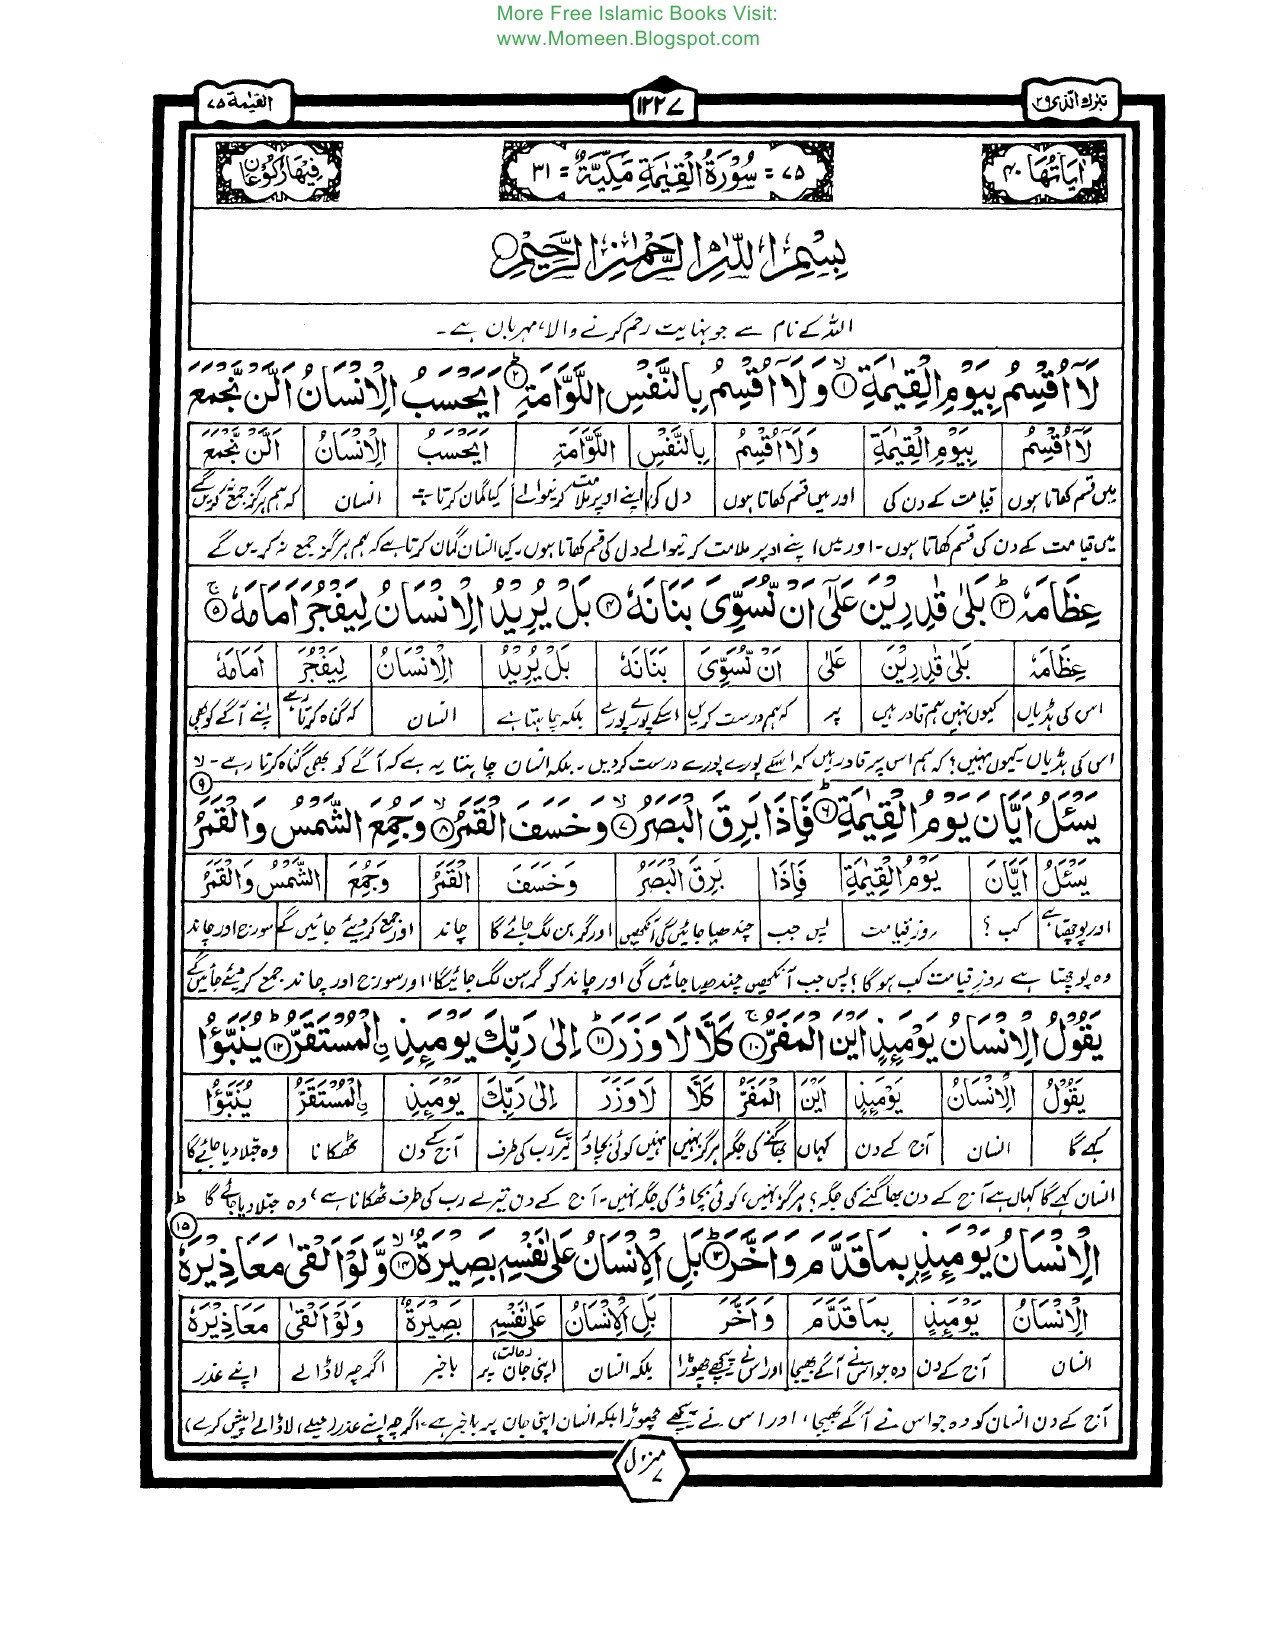 More Free Islamic Books Visit:
www.Momeen.Blogspot.com
تبٰرك الذى ٢٩
١٢٢٧
القيٰمة ٧٥
اٰيَاتُهَا ٤٠
٧٥ = سُوْرَةُ الْقِيٰمَةِ مَكِّيَّةٌ = ٣١
فِيْهَا رُكُوْعَانِ
بِسْمِ اللّٰهِ الرَّحْمٰنِ الرَّحِيْمِ
اللہ کے نام سے جو نہایت رحم کرنے والا، مہربان ہے۔
لَآ اُقْسِمُ بِيَوْمِ الْقِيٰمَةِ ۙ﴿١﴾ وَلَآ اُقْسِمُ بِالنَّفْسِ اللَّوَّامَةِ ؕ﴿٢﴾ اَيَحْسَبُ الْاِنْسَانُ اَلَّنْ نَّجْمَعَ
لَآ اُقْسِمُ بِيَوْمِ الْقِيٰمَةِ وَلَآ اُقْسِمُ بِالنَّفْسِ اللَّوَّامَةِ اَيَحْسَبُ الْاِنْسَانُ اَلَّنْ نَّجْمَعَ
میں قسم کھاتا ہوں قیامت کے دن کی اور میں قسم کھاتا ہوں دل کی اپنے اوپر ملامت کرنیوالے کیا گمان کرتا ہے انسان کہ ہم ہرگز جمع نہ کریں گے
میں قیامت کے دن کی قسم کھاتا ہوں۔ اور میں اپنے اوپر ملامت کرنیوالے دل کی قسم کھاتا ہوں۔ کیا انسان گمان کرتا ہے کہ ہم ہرگز جمع نہ کریں گے
عِظَامَهٗ ؕ﴿٣﴾ بَلٰى قٰدِرِيْنَ عَلٰٓى اَنْ نُّسَوِّىَ بَنَانَهٗ ﴿٤﴾ بَلْ يُرِيْدُ الْاِنْسَانُ لِيَفْجُرَ اَمَامَهٗ ۚ﴿٥﴾
عِظَامَهٗ بَلٰى قٰدِرِيْنَ عَلٰٓى اَنْ نُّسَوِّىَ بَنَانَهٗ بَلْ يُرِيْدُ الْاِنْسَانُ لِيَفْجُرَ اَمَامَهٗ
اس کی ہڈیاں کیوں نہیں ہم قادر ہیں پر کہ ہم درست کریں اسکے پورے پورے بلکہ چاہتا ہے انسان کہ گناہ کرتا رہے اپنے آگے کو بھی
اس کی ہڈیاں کیوں نہیں؟ کہ ہم اس پر قادر ہیں کہ اسکے پورے پورے درست کردیں۔ بلکہ انسان چاہتا یہ ہے کہ آگے کو بھی گناہ کرتا رہے۔
يَسْـَٔلُ اَيَّانَ يَوْمُ الْقِيٰمَةِ ؕ﴿٦﴾ فَاِذَا بَرِقَ الْبَصَرُ ۙ﴿٧﴾ وَخَسَفَ الْقَمَرُ ۙ﴿٨﴾ وَجُمِعَ الشَّمْسُ وَالْقَمَرُ ۙ﴿٩﴾
يَسْـَٔلُ اَيَّانَ يَوْمُ الْقِيٰمَةِ فَاِذَا بَرِقَ الْبَصَرُ وَخَسَفَ الْقَمَرُ وَجُمِعَ الشَّمْسُ وَالْقَمَرُ
اور پوچھتا ہے کب؟ روز قیامت پس جب چندھیا جائیں گی آنکھیں اور گرہن لگ جائے گا چاند اور جمع کردیئے جائیں گے سورج اور چاند
وہ پوچھتا ہے روز قیامت کب ہوگا؟ پس جب آنکھیں چندھیا جائیں گی اور چاند کو گرہن لگ جائیگا، اور سورج اور چاند جمع کردیئے جائیں گے
يَقُوْلُ الْاِنْسَانُ يَوْمَئِذٍ اَيْنَ الْمَفَرُّ ۚ﴿١٠﴾ كَلَّا لَا وَزَرَ ؕ﴿١١﴾ اِلٰى رَبِّكَ يَوْمَئِذِ ۨالْمُسْتَقَرُّ ؕ﴿١٢﴾ يُنَبَّؤُا
يَقُوْلُ الْاِنْسَانُ يَوْمَئِذٍ اَيْنَ الْمَفَرُّ كَلَّا لَا وَزَرَ اِلٰى رَبِّكَ يَوْمَئِذِ ۨالْمُسْتَقَرُّ يُنَبَّؤُا
کہے گا انسان آج کے دن کہاں بھاگنے کی جگہ ہرگز نہیں نہیں کوئی بچاؤ تیرے رب کی طرف آج کے دن ٹھکانا وہ جتلا دیا جائے گا
انسان کہے گا کہاں ہے آج کے دن بھاگنے کی جگہ؟ ہرگز نہیں، کوئی بچاؤ کی جگہ نہیں۔ آج کے دن تیرے رب کی طرف ٹھکانا ہے، وہ جتلا دیا جائے گا
الْاِنْسَانُ يَوْمَئِذٍ بِمَا قَدَّمَ وَاَخَّرَ ؕ﴿١٣﴾ بَلِ الْاِنْسَانُ عَلٰى نَفْسِهٖ بَصِيْرَةٌ ۙ﴿١٤﴾ وَّلَوْ اَلْقٰى مَعَاذِيْرَهٗ ؕ﴿١٥﴾
الْاِنْسَانُ يَوْمَئِذٍ بِمَا قَدَّمَ وَاَخَّرَ بَلِ الْاِنْسَانُ عَلٰى نَفْسِهٖ بَصِيْرَةٌ وَلَوْ اَلْقٰى مَعَاذِيْرَهٗ
انسان آج کے دن وہ جو اس نے آگے بھیجا اور اس نے پیچھے چھوڑا بلکہ انسان اپنی جان (حالت) پر باخبر اگرچہ لا ڈالے اپنے عذر
آج کے دن انسان کو وہ جو اس نے آگے بھیجا، اور اس نے پیچھے چھوڑا بلکہ انسان اپنی جان پر باخبر ہے۔ اگرچہ اپنے عذر (حیلے) لا ڈالے (پیش کرے)
منزل ٧